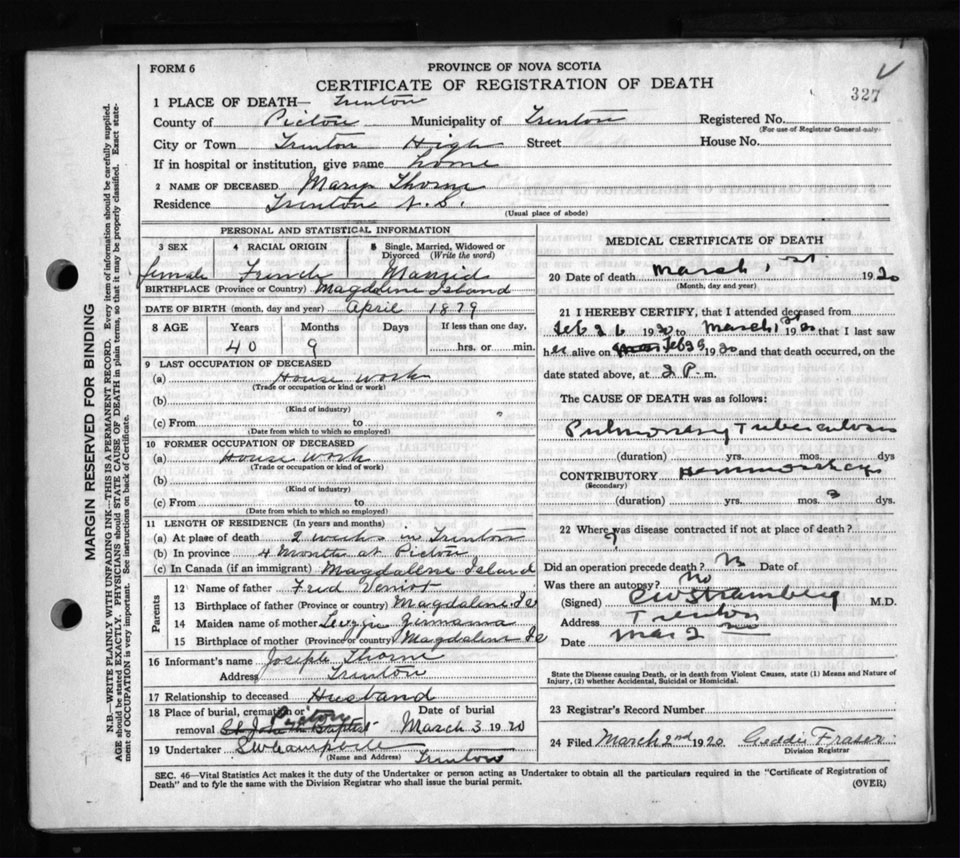 FORM 6
PROVINCE OF NOVA SCOTIA
CERTIFICATE OF REGISTRATION OF DEATH
327
1 PLACE OF DEATH— Trenton
County of Pictou Municipality of Trenton Registered No.
(For use of Registrar General only)
City or Town Trenton High Street House No.
If in hospital or institution, give name home
2 NAME OF DECEASED Mary Thorne
Residence Trenton N.S.
(Usual place of abode)
PERSONAL AND STATISTICAL INFORMATION
3 SEX 4 RACIAL ORIGIN 5 Single, Married, Widowed or Divorced (Write the word)
female French Married
BIRTHPLACE (Province or Country) Magdalene Island
DATE OF BIRTH (month, day and year) April 1879
8 AGE Years Months Days If less than one day,
40 9 hrs. or min.
9 LAST OCCUPATION OF DECEASED
(a) House work
(Trade or occupation or kind or work)
(b)
(Kind of industry)
(c) From to
(Date from which to which so employed)
10 FORMER OCCUPATION OF DECEASED
(a) House work
(Trade or occupation or kind of work)
(b)
(Kind of industry)
(c) From to
(Date from which to which so employed)
11 LENGTH OF RESIDENCE (In years and months)
(a) At place of death 2 weeks in Trenton
(b) In province 4 Months at Pictou
(c) In Canada (if an immigrant) Magdalene Island
Parents
12 Name of father Fred
13 Birthplace of father (Province or country) Magdalene Is
14 Maiden name of mother
15 Birthplace of mother (Province or country) Magdalene Is
16 Informant's name Joseph Thorne
Address Trenton
17 Relationship to deceased Husband
18 Place of burial, cremation or removal Pictou
Date of burial March 3 1920
19 Undertaker
(Name and Address) Trenton
MEDICAL CERTIFICATE OF DEATH
20 Date of death March 1st 1920
(Month, day and year)
21 I HEREBY CERTIFY, that I attended deceased from
Feb 26 1920 to March 1st 1920 that I last saw
her alive on Feb 1920 and that death occurred, on the
date stated above, at 2 P. m.
The CAUSE OF DEATH was as follows:
Pulmonary Tuberculosis
(duration) yrs. mos. dys.
CONTRIBUTORY Hemmorhage
(Secondary)
(duration) yrs. mos. 3 dys.
22 Where was disease contracted if not at place of death?
Did an operation precede death? No Date of
Was there an autopsy? No
(Signed) M.D.
Address Trenton
Date Mar 2
State the Disease causing Death, or in death from Violent Causes, state (1) Means and Nature of
Injury, (2) whether Accidental, Suicidal or Homicidal.
23 Registrar's Record Number
24 Filed March 2nd 1920 Geddie Fraser
Division Registrar
SEC. 46—Vital Statistics Act makes it the duty of the Undertaker or person acting as Undertaker to obtain all the particulars required in the "Certificate of Registration of
Death" and to fyle the same with the Division Registrar who shall issue the burial permit. (OVER)
MARGIN RESERVED FOR BINDING
N.B.—WRITE PLAINLY WITH UNFADING INK—THIS IS A PERMANENT RECORD. Every item of information should be carefully supplied.
AGE should be stated EXACTLY. PHYSICIANS should STATE CAUSE OF DEATH in plain terms, so that it may be properly classified. Exact state-
ment of OCCUPATION is very important. See instructions on back of Certificate.